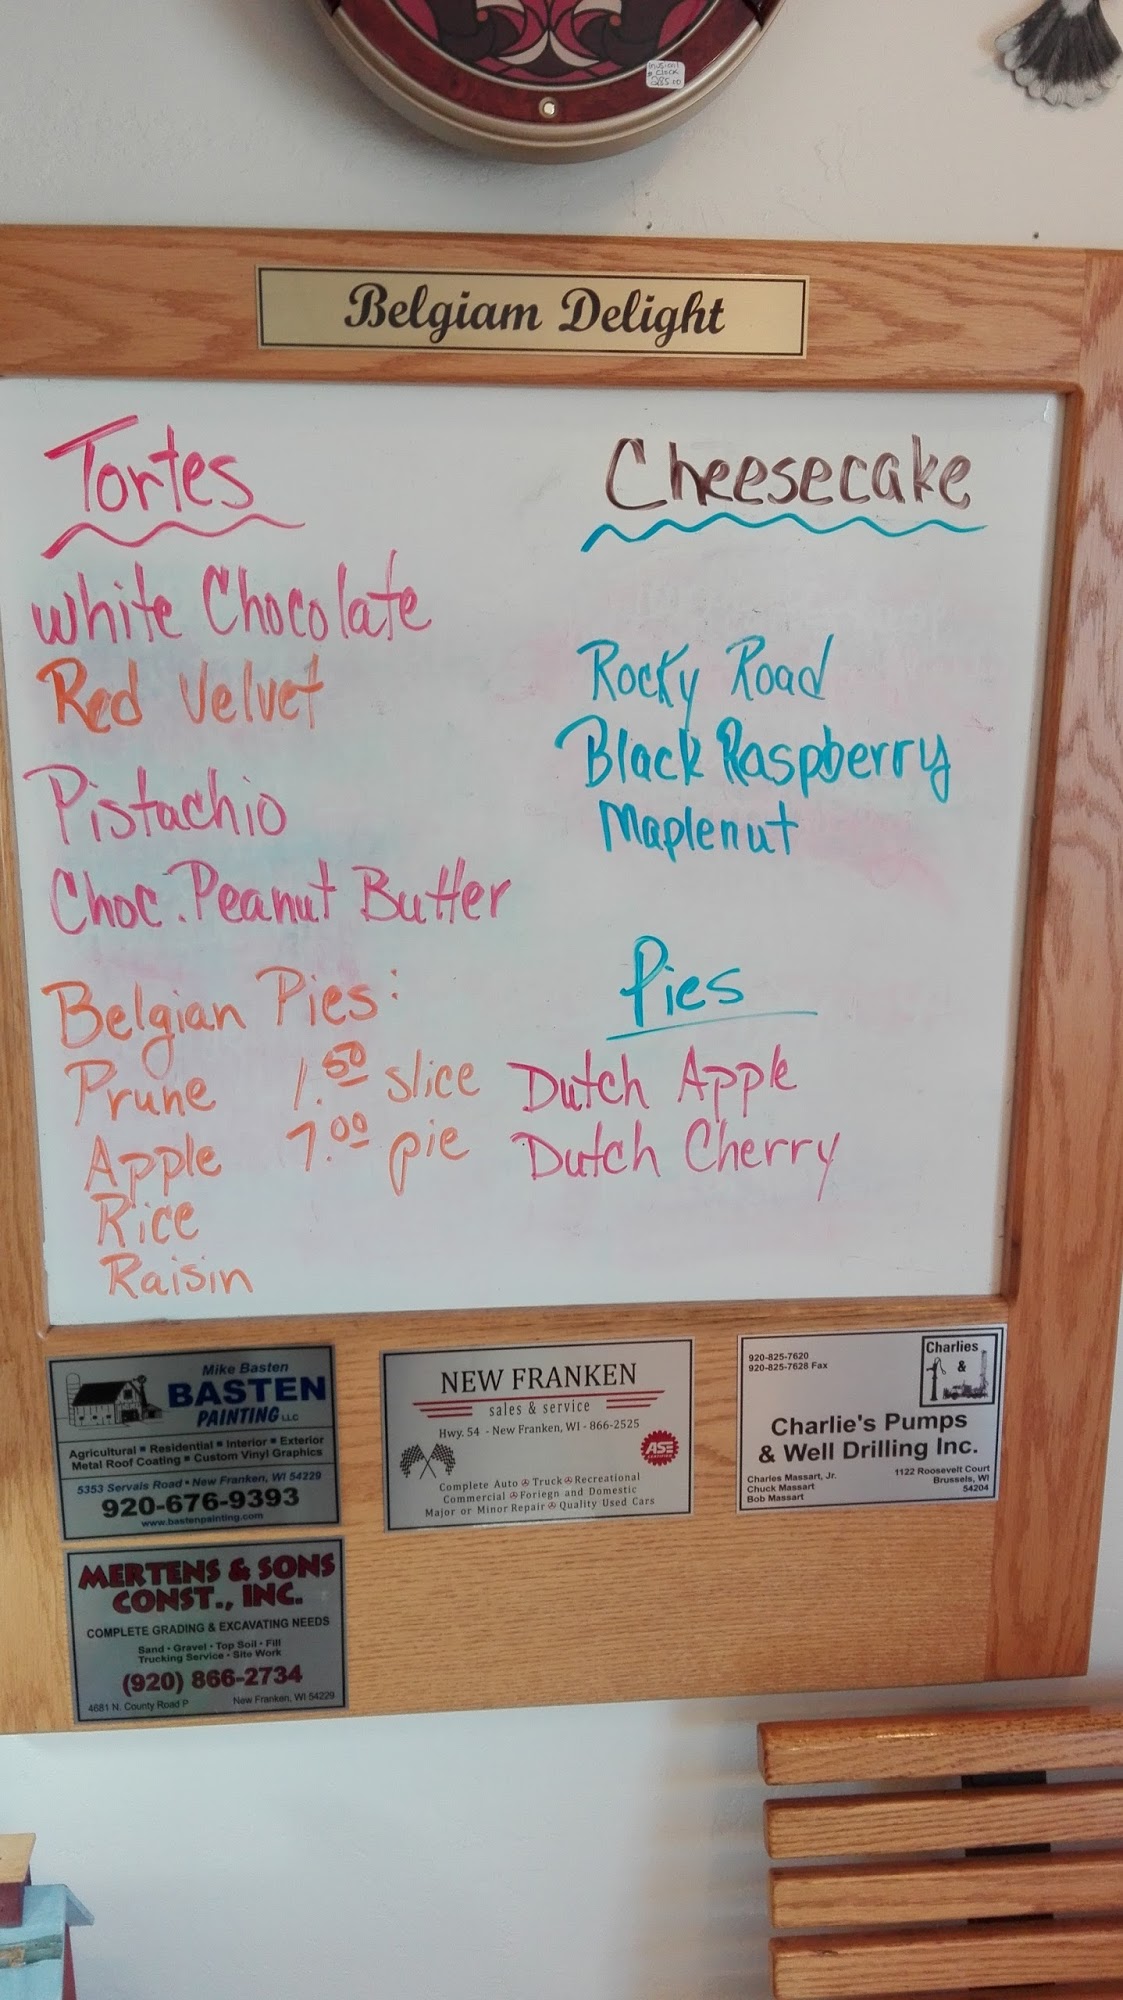 Belgiam Delight
Tortes
White Chocolate
Red Velvet
Pistachio
Choc. Peanut Butter
Belgian Pies:
Prune 1.50 slice
Apple 7.00 pie
Rice
Raisin
Cheesecake
Rocky Road
Black Raspberry
Maplenut
Pies
Dutch Apple
Dutch Cherry
Mike Basten
BASTEN
PAINTING LLC
Agricultural ▪ Residential ▪ Interior ▪ Exterior
Metal Roof Coating ▪ Custom Vinyl Graphics
5353 Servais Road • New Franken, WI 54229
920-676-9393
www.bastenpainting.com
NEW FRANKEN
sales & service
Hwy. 54 - New Franken, WI - 866-2525
ASE
Complete Auto Truck Recreational
Commercial Foriegn and Domestic
Major or Minor Repair Quality Used Cars
920-825-7620
920-825-7628 Fax
Charlies
&
Charlie's Pumps
& Well Drilling Inc.
Charles Massart, Jr.
Chuck Massart
Bob Massart
1122 Roosevelt Court
Brussels, WI
54204
MERTENS & SONS
CONST., INC.
COMPLETE GRADING & EXCAVATING NEEDS
Sand • Gravel • Top Soil • Fill
Trucking Service • Site Work
(920) 866-2734
4681 N. County Road P New Franken, WI 54229
clock
285.00